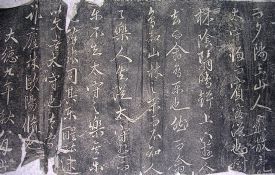 而夕陽在山人影散
太守歸而賓客從也
林陰翳鳴聲上下遊人
去而禽鳥樂也然而禽
鳥知山林之樂而不知人
之樂人知從太守遊而
樂而不知太守之樂其樂
也醉能同其樂醒能述
以文者太守也太守
誰廬陵歐陽脩也
大德九年秋八月